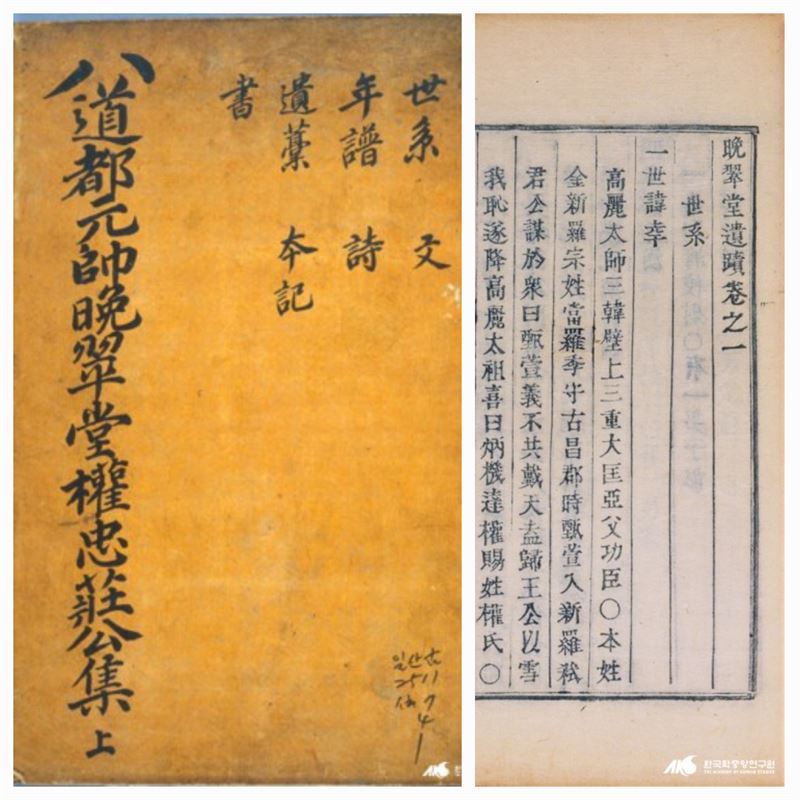 世系 文
年譜 詩
遺藁 夲記
書
八道都元帥晩翠堂權忠莊公集 上
일산古
2511
7
4
1
AKS 한국
晩翠堂遺蹟卷之一
世系
一世諱幸
高麗太師三韓壁上三重大匡亞父功臣〇本姓
金新羅宗姓當羅季守古昌郡時甄萱入新羅弒
君公謀於衆曰甄萱義不共戴天盍歸王公以雪
我恥遂降高麗太祖喜曰炳機達權賜姓權氏〇
AKS 한국학중앙연구원
THE ACADEMY OF KOREAN STUDIES